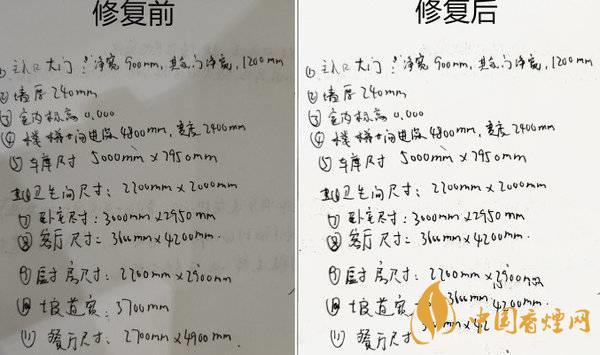 修复前
① 主入口大门：净宽900mm，其余门净宽，1200mm
② 墙厚240mm
③ 室内标高0.000
④ 楼梯间进深4800mm，宽度2400mm
⑤ 车库尺寸 5000mm×2950mm
卫生间尺寸：2200mm×2000mm
⑦ 卧室尺寸：3000mm×2950mm
⑧ 客厅尺寸：3600mm×4200mm.
⑨ 厨房尺寸：2200mm×2900mm
⑩ 坡道宽：3700mm
⑪ 餐厅尺寸：2700mm×4900mm.
修复后
① 主入口大门：净宽900mm，其余门净宽，1200mm
② 墙厚240mm
③ 室内标高0.000
④ 楼梯间进深4800mm，宽度2400mm
⑤ 车库尺寸 5000mm×2950mm
卫生间尺寸：2200mm×2000mm
⑦ 卧室尺寸：3000mm×2950mm
⑧ 客厅尺寸：3600mm×4200mm.
⑨ 厨房尺寸：2200mm×2900mm
⑩ 坡道宽 3600mm 4200mm
⑪ 餐厅尺寸
中国香烟网